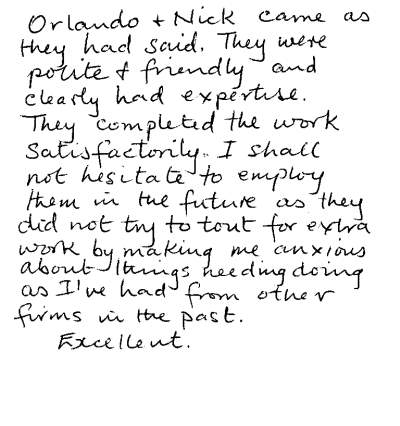 Orlando + Nick came as
they had said. They were
polite & friendly and
clearly had expertise.
They completed the work
satisfactorily. I shall
not hesitate to employ
them in the future as they
did not try to tout for extra
work by making me anxious
about things needing doing
as I've had from other
firms in the past.
Excellent.